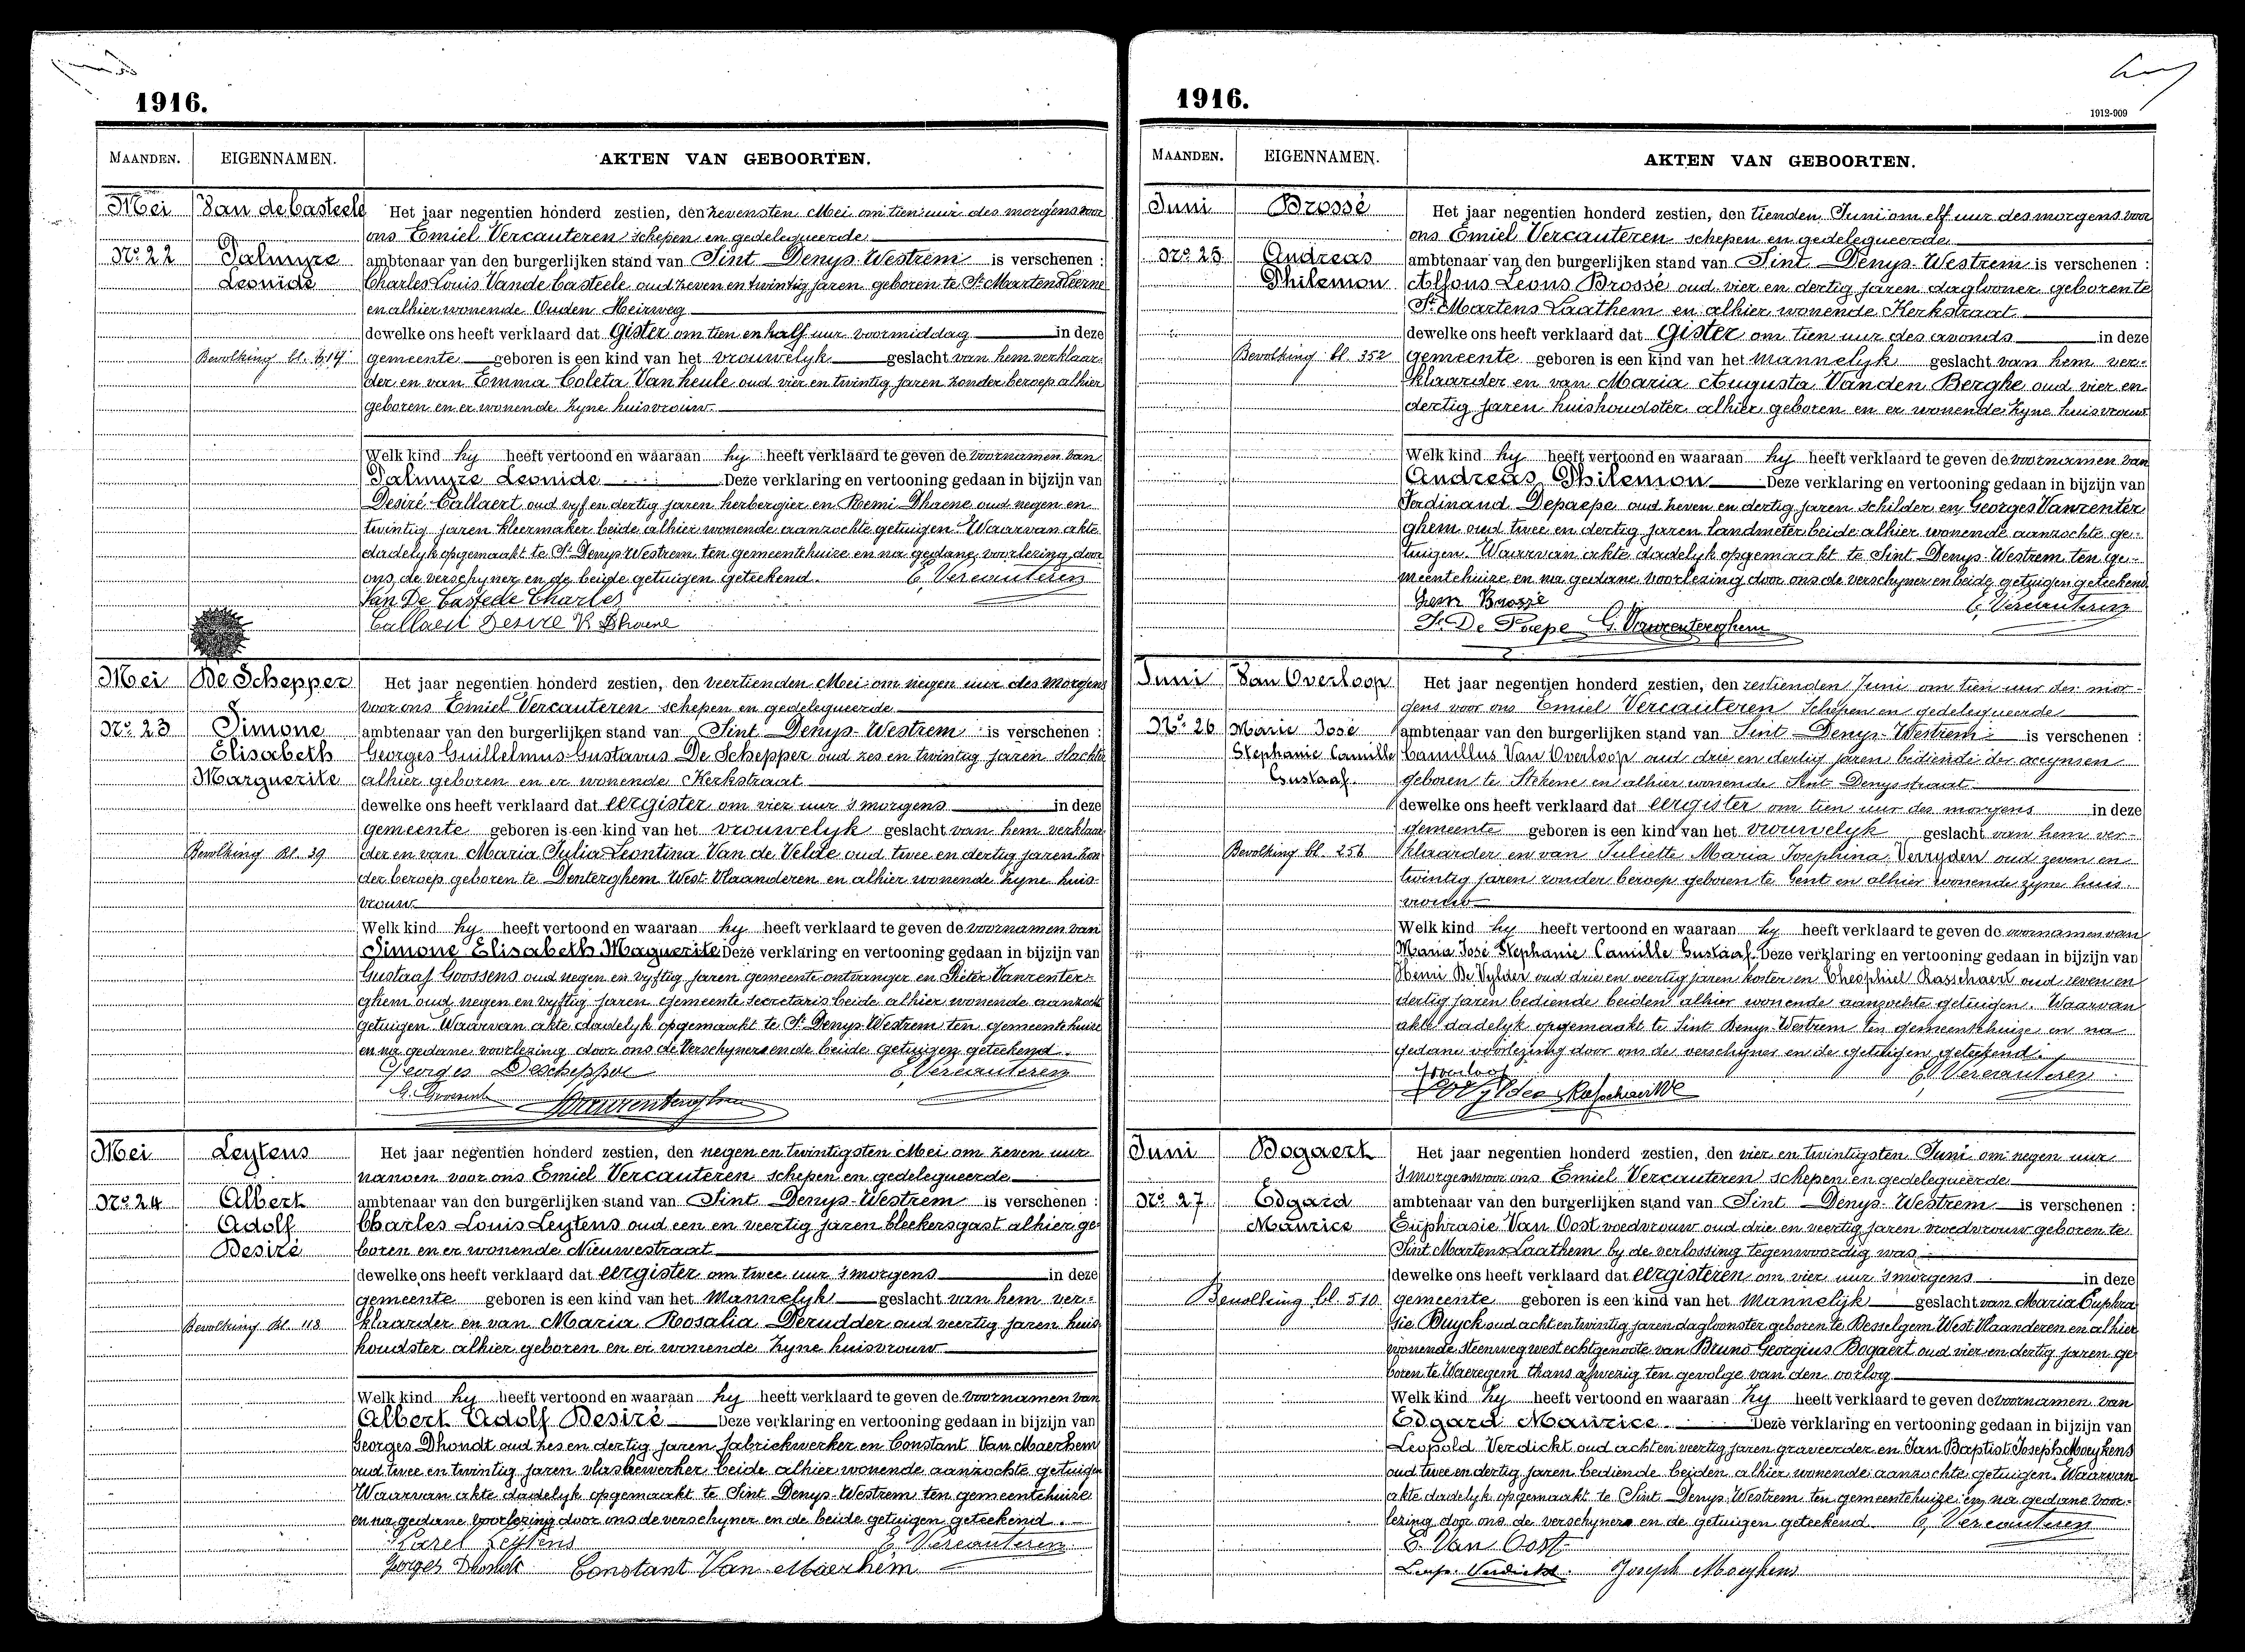 1916.
MAANDEN.
EIGENNAMEN.
AKTEN VAN GEBOORTEN.
Mei
Van de Casteele
Nº 22
Palmyre
Leonide
Bevolking bl. 614
Het jaar negentien honderd zestien, den zevensten Mei om tien uur des morgens voor
ons Emiel Vercauteren schepen en gedelegueerde
ambtenaar van den burgerlijken stand van Sint Denys-Westrem is verschenen :
Charles Louis Vande Casteele oud zeven en twintig jaren geboren te St Maartens Leerne
en alhier wonende Ouden Heirweg
dewelke ons heeft verklaard dat Gister om tien en half uur voormiddag in deze
gemeente geboren is een kind van het vrouwelyk geslacht van hem verklaar-
der en van Emma Coleta Van heule oud vier en twintig jaren zonder beroep alhier
geboren en er wonende zyne huisvrouw
Welk kind hy heeft vertoond en waaraan hy heeft verklaard te geven de voornamen van
Palmyre Leonide Deze verklaring en vertooning gedaan in bijzijn van
Desiré Callaert oud vyf en dertig jaren herbergier en Remi Dhaene oud negen en
twintig jaren kleermaker beide alhier wonende aanzochte getuigen. Waarvan akte
dadelyk opgemaakt te St Denys-Westrem ten gemeentehuize en na gedane voorlezing door
ons, de verschyner en de beide getuigen geteekend. E. Vercauteren
Van De Casteele Charles
Callaert Desire R Dhaene
Mei
De Schepper
Nº 23
Simone
Elisabeth
Marguerite
Bevolking Bl. 39
Het jaar negentien honderd zestien, den veertienden Mei om negen uur des morgens
voor ons Emiel Vercauteren schepen en gedelegueerde
ambtenaar van den burgerlijken stand van Sint Denys-Westrem is verschenen :
Georges Guillelmus Gustavus De Schepper oud zes en twintig jaren slachter
alhier geboren en er wonende Kerkstraat
dewelke ons heeft verklaard dat eergister om vier uur 's morgens in deze
gemeente geboren is een kind van het vrouwelyk geslacht van hem verklaar-
der en van Maria Julia Leontina Van de Velde oud twee en dertig jaren zon
der beroep geboren te Denterghem West-Vlaanderen en alhier wonende zyne huis-
vrouw
Welk kind hy heeft vertoond en waaraan hy heeft verklaard te geven de voornamen van
Simone Elisabeth Maguerite Deze verklaring en vertooning gedaan in bijzijn van
Gustaaf Goossens oud negen en vyftig jaren gemeente ontvanger en Pieter Vanrenter-
ghem oud negen en vyftig jaren gemeente secretaris beide alhier wonende aanzochte
getuigen. Waarvan akte dadelyk opgemaakt te St Denys-Westrem ten gemeentehuize
en na gedane voorlezing door ons de verschyner en de beide getuigen geteekend.
Georges Deschepper E. Vercauteren
G. Goossens Vanrenterghem
Mei
Leytens
Nº 24
Albert
Adolf
Desiré
Bevolking Bl. 118
Het jaar negentien honderd zestien, den negen en twintigsten Mei om zeven uur
nanoen voor ons Emiel Vercauteren schepen en gedelegueerde
ambtenaar van den burgerlijken stand van Sint Denys-Westrem is verschenen :
Charles Louis Leytens oud een en veertig jaren bleekersgast alhier ge-
boren en er wonende Nieuwestraat
dewelke ons heeft verklaard dat eergister om twee uur 's morgens in deze
gemeente geboren is een kind van het Mannelyk geslacht van hem ver-
klaarder en van Maria Rosalia Derudder oud veertig jaren huis
houdster alhier geboren en er wonende zyne huisvrouw
Welk kind hy heeft vertoond en waaraan hy heeft verklaard te geven de voornamen van
Albert Adolf Desiré Deze verklaring en vertooning gedaan in bijzijn van
Georges Dhondt oud zes en dertig jaren fabriekwerker en Constant Van Maerhem
oud twee en twintig jaren vlasbewerker beide alhier wonende aanzochte getuigen
Waarvan akte dadelyk opgemaakt te Sint Denys-Westrem ten gemeentehuize
en na gedane voorlezing door ons de verschyner en de beide getuigen geteekend.
Karel Leytens E. Vercauteren
Gorges Dhondt Constant Van Maerhem
1916.
1912-909
MAANDEN.
EIGENNAMEN.
AKTEN VAN GEBOORTEN.
Juni
Brossé
Nº 25
Andreas
Philemon
Bevolking bl. 352
Het jaar negentien honderd zestien, den tienden Juni om elf uur des morgens voor
ons Emiel Vercauteren schepen en gedelegueerde
ambtenaar van den burgerlijken stand van Sint Denys-Westrem is verschenen :
Alfons Leons Brossé oud vier en dertig jaren daglooner geboren te
St Martens Laathem en alhier wonende Kerkstraat
dewelke ons heeft verklaard dat Gister om tien uur des avonds in deze
gemeente geboren is een kind van het mannelyk geslacht van hem ver-
klaarder en van Maria Augusta Vanden Berghe oud vier en
dertig jaren huishoudster alhier geboren en er wonende zyne huisvrouw
Welk kind hy heeft vertoond en waaraan hy heeft verklaard te geven de voornamen van
Andreas Philemon Deze verklaring en vertooning gedaan in bijzijn van
Ferdinand Depaepe oud zeven en dertig jaren schilder en Georges Vanrenter
ghem oud twee en dertig jaren landmeter beide alhier wonende aanzochte ge-
tuigen. Waarvan akte dadelyk opgemaakt te Sint Denys-Westrem ten ge-
meentehuize en na gedane voorlezing door ons de verschyner en beide getuigen geteekend
Brossé E. Vercauteren
F. De Paepe G. Vanrenterghem
Juni
Van Overloop
Nº 26
Marie José
Stephanie Camille
Gustaaf
Bevolking bl. 256
Het jaar negentien honderd zestien, den zestienden Juni om tien uur des mor-
gens voor ons Emiel Vercauteren Schepen en gedelegueerde
ambtenaar van den burgerlijken stand van Sint Denys-Westrem is verschenen :
Camillus Van Overloop oud drie en dertig jaren bediende der accynsen
geboren te Stekene en alhier wonende Sint Denysstraat
dewelke ons heeft verklaard dat eergister om tien uur des morgens in deze
gemeente geboren is een kind van het vrouwelyk geslacht van hem ver-
klaarder en van Juliette Maria Josephina Verryden oud zeven en
twintig jaren zonder beroep geboren te Gent en alhier wonende zyne huis-
vrouw
Welk kind hy heeft vertoond en waaraan hy heeft verklaard te geven de voornamen van
Maria José Stephanie Camille Gustaaf. Deze verklaring en vertooning gedaan in bijzijn van
Henri De Vylder oud drie en veertig jaren koster en Theophiel Rasschaert oud zeven en
dertig jaren bediende beiden alhier wonende aanzochte getuigen. Waarvan
akte dadelyk opgemaakt te Sint Denys-Westrem ten gemeentehuize en na
gedane voorlezing door ons de verschyner en de getuigen geteekend.
E. Vercauteren
Juni
Bogaert
Nº 27
Edgard
Maurice
Bevolking bl. 510
Het jaar negentien honderd zestien, den vier en twintigsten Juni om negen uur
's morgens voor ons Emiel Vercauteren schepen en gedelegueerde
ambtenaar van den burgerlijken stand van Sint Denys-Westrem is verschenen :
Euphrasie Van Oost voedvrouw oud drie en veertig jaren vroedvrouw geboren te
Sint Martens Laathem by de verlossing tegenwoordig was
dewelke ons heeft verklaard dat eergisteren om vier uur 's morgens in deze
gemeente geboren is een kind van het Mannelijk geslacht van Maria Euphra
sie Buyck oud acht en twintig jaren dagloonster geboren te Desselgem West Vlaanderen en alhier
wonende Steenweg west echtgenoote van Bruno Georgius Bogaert oud vier en dertig jaren ge
boren te Waeregem thans afwezig ten gevolge van den oorlog
Welk kind zy heeft vertoond en waaraan zy heeft verklaard te geven de voornamen van
Edgard Maurice Deze verklaring en vertooning gedaan in bijzijn van
Leopold Verdickt oud acht en veertig jaren graveerder en Jan Baptist Joseph Moeykens
oud twee en dertig jaren bediende beiden alhier wonende aanzochte getuigen. Waarvan
akte dadelyk opgemaakt te Sint Denys-Westrem ten gemeentehuize en na gedane voor-
lezing door ons de verschyners en de getuigen geteekend E. Vercauteren
E. Van Oost
Leop. Verdickt. Joseph Moeykens